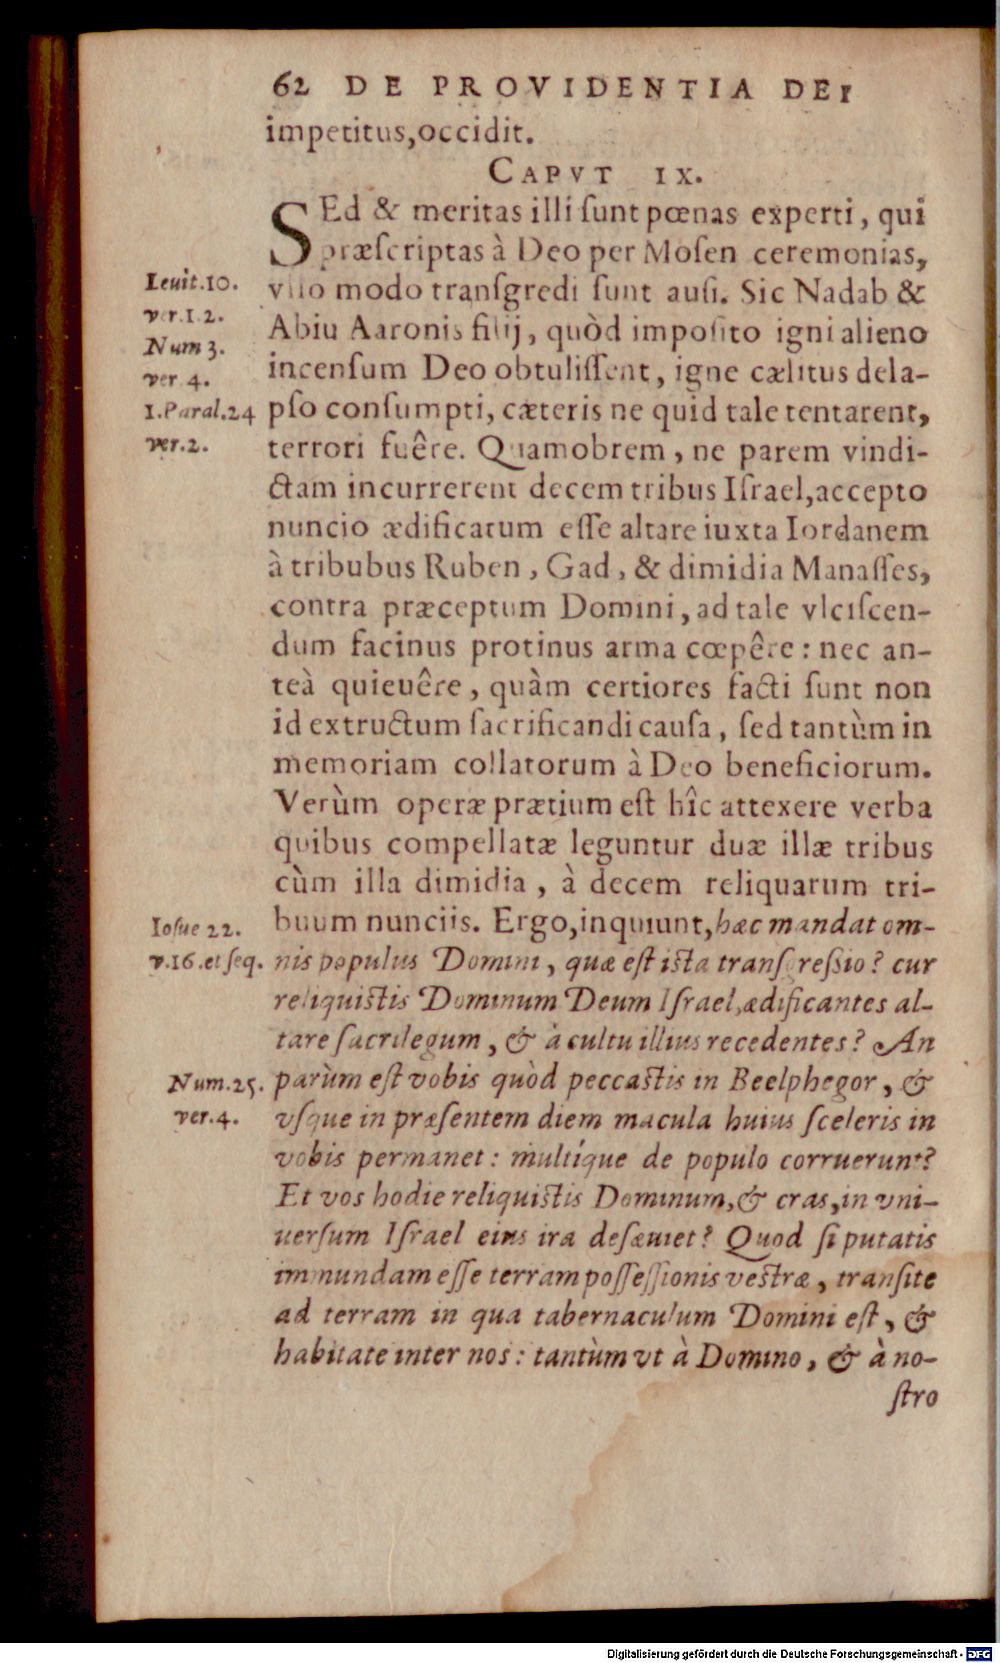 62 DE PROVIDENTIA DEI
impetitus,occidit.
CAPVT IX.
SEd & meritas illi ſunt pœnas experti, qui
præſcriptas à Deo per Moſen ceremonias,
Leuit.10.
vllo modo tranſgredi ſunt auſi. Sic Nadab &
ver.1.2.
Abiu Aaronis filij, quòd impoſito igni alieno
Num 3.
incenſum Deo obtuliſſent, igne cælitus dela-
ver 4.
1.Paral.24
pſo conſumpti, cæteris ne quid tale tentarent,
ver.2.
terrori fuêre. Quamobrem, ne parem vindi-
ctam incurrerent decem tribus Iſrael,accepto
nuncio ædificatum eſſe altare iuxta Iordanem
à tribubus Ruben, Gad, & dimidia Manaſſes,
contra præceptum Domini, ad tale vlciſcen-
dum facinus protinus arma cœpêre: nec an-
teà quieuêre, quàm certiores facti ſunt non
id extructum ſacrificandi cauſa, ſed tantùm in
memoriam collatorum à Deo beneficiorum.
Verùm operæ prætium eſt hîc attexere verba
quibus compellatæ leguntur duæ illæ tribus
cùm illa dimidia, à decem reliquarum tri-
Ioſue 22.
buum nunciis. Ergo,inquiunt,hæc mandat om-
v.16.et ſeq.
nis populus Domini, quæ eſt iſta tranſgreßio? cur
reliquiſtis Dominum Deum Iſrael,ædificantes al-
tare ſacrilegum, & à cultu illius recedentes? An
Num.25.
parùm eſt vobis quòd peccaſtis in Beelphegor, &
ver.4.
vſque in præſentem diem macula huius ſceleris in
vobis permanet: multíque de populo corruerunt?
Et vos hodie reliquiſtis Dominum,& cras,in vni-
uerſum Iſrael eius ira deſæuiet? Quod ſi putatis
immundam eſſe terram poſſeſſionis veſtræ, tranſite
ad terram in qua tabernaculum Domini eſt, &
habitate inter nos: tantùm vt à Domino, & à no-
ſtro
Digitalisierung gefördert durch die Deutsche Forschungsgemeinschaft - DFG